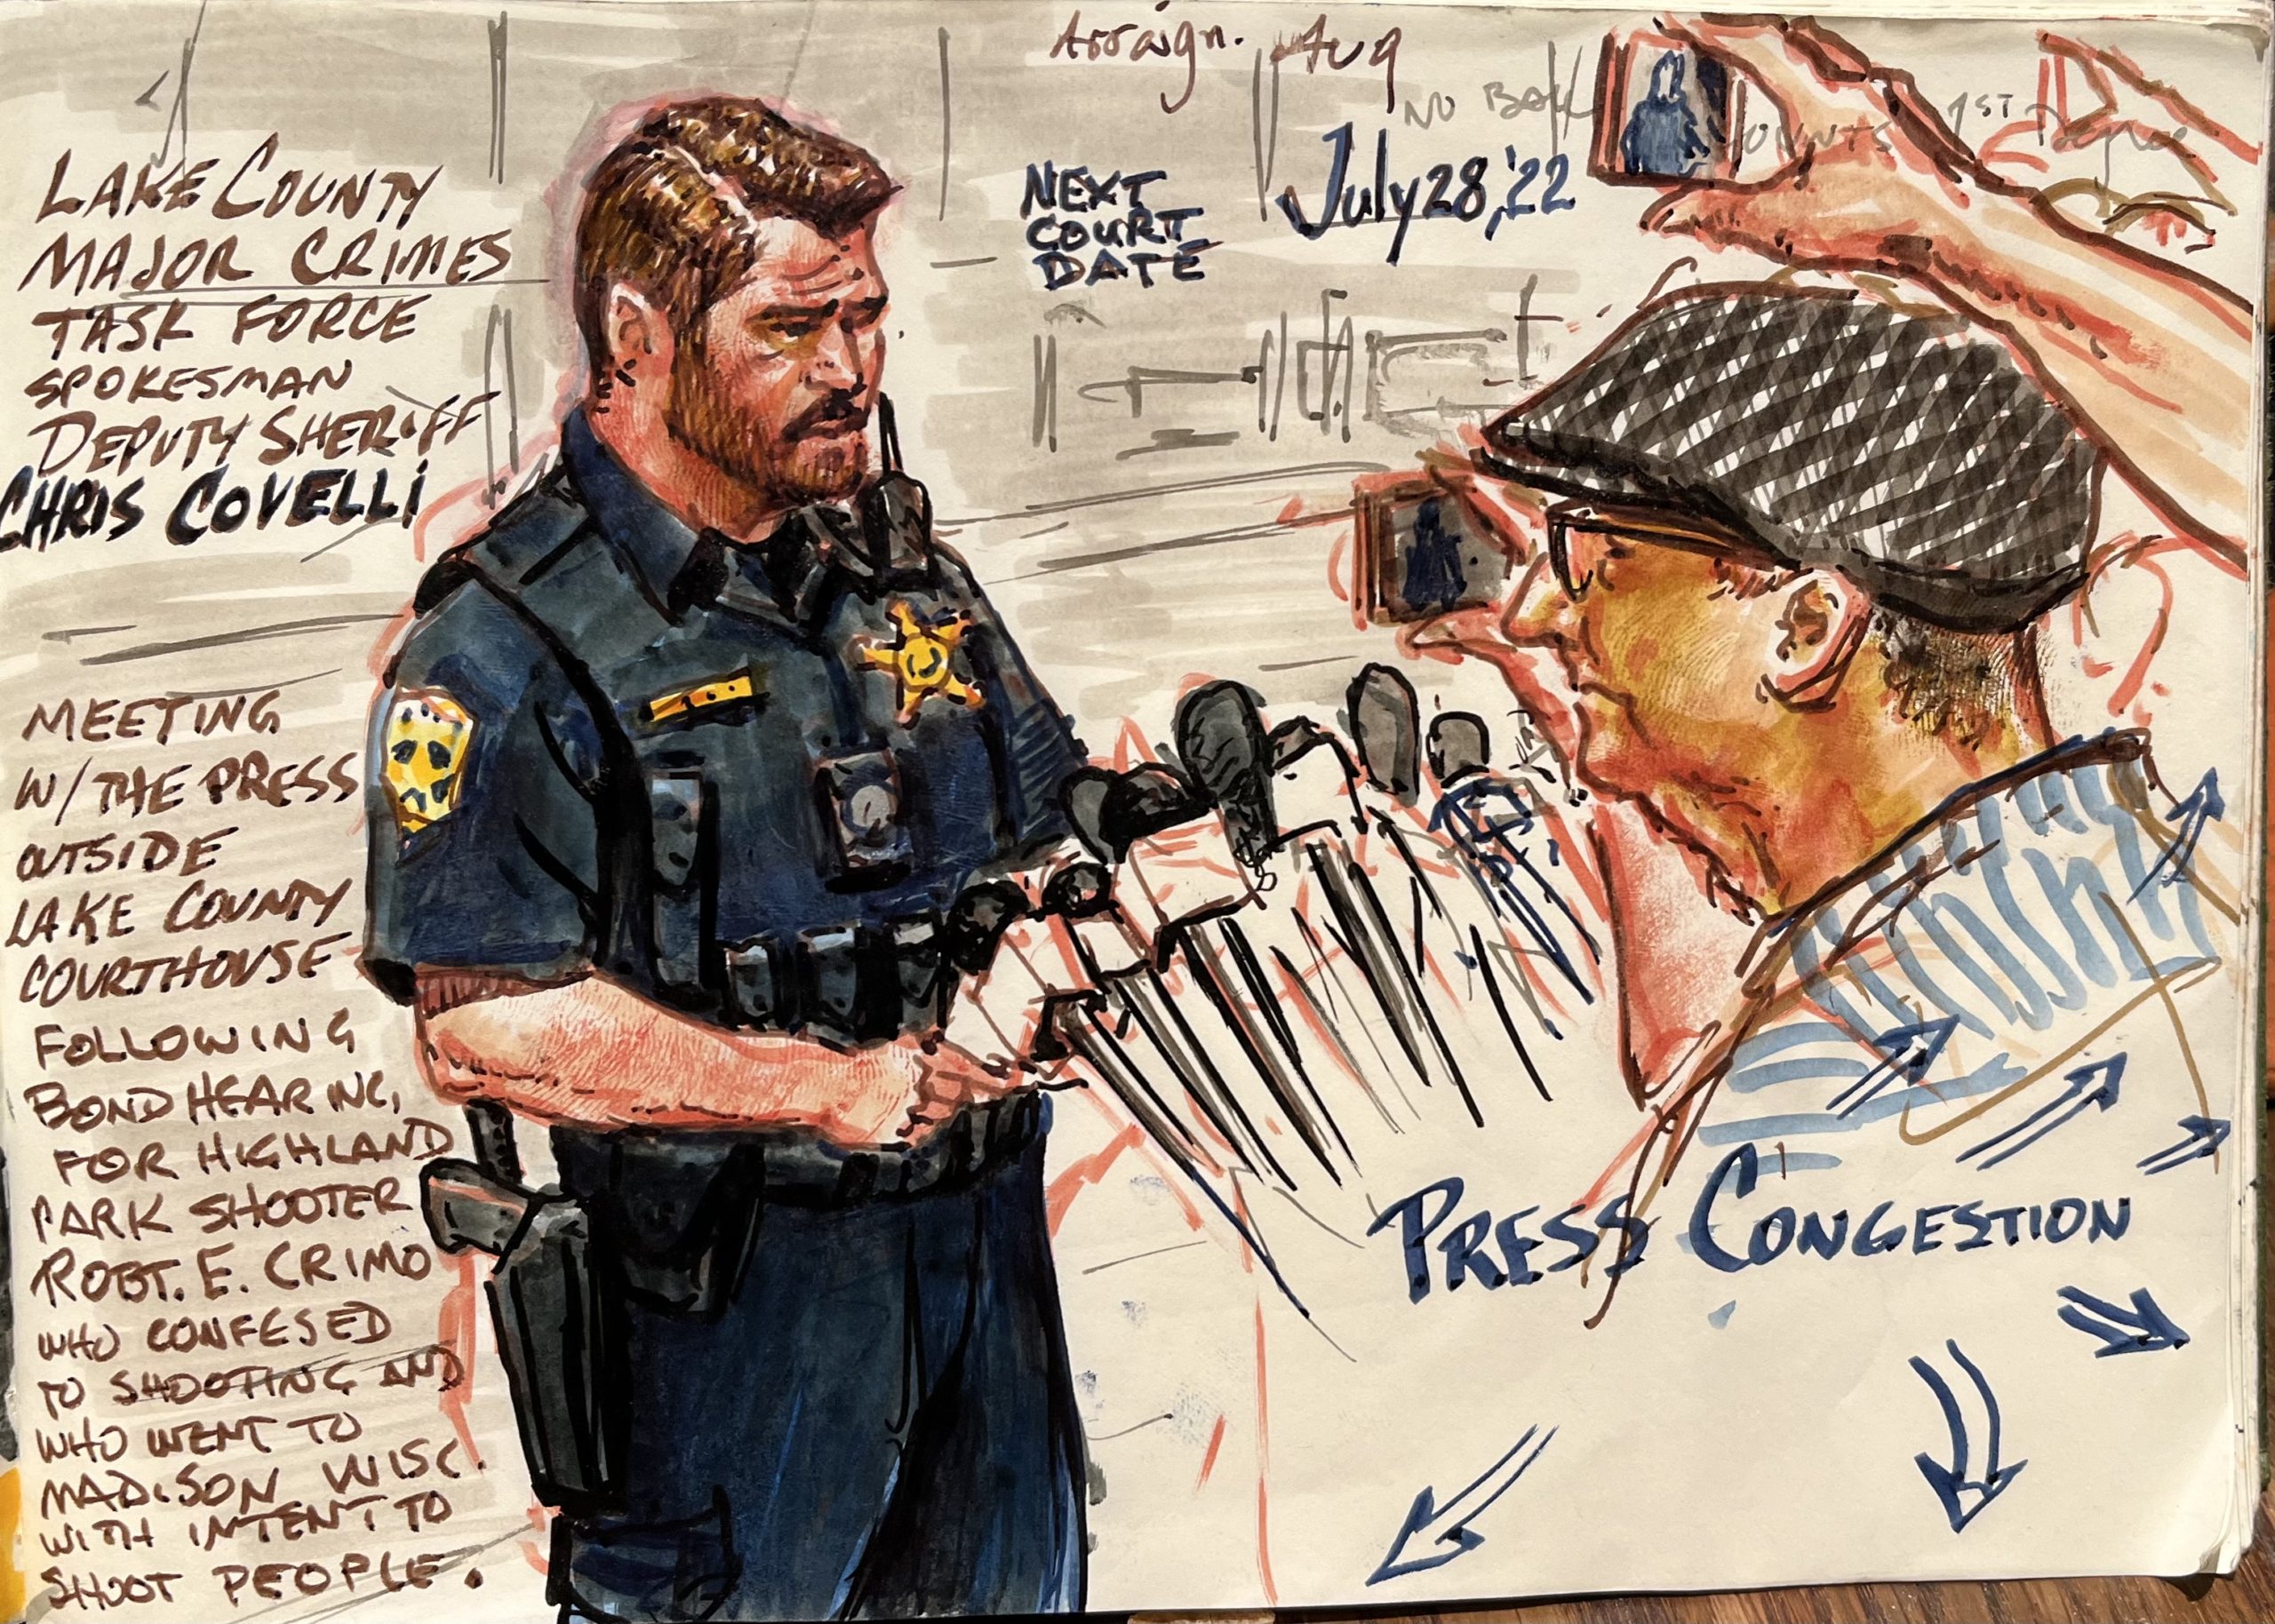 Arraign. Aug
NO BAIL
COUNTS 1ST Degree
LAKE COUNTY
MAJOR CRIMES
TASK FORCE
SPOKESMAN
DEPUTY SHERIFF
CHRIS COVELLI
NEXT
COURT
DATE
July 28, '22
MEETING
W/ THE PRESS
OUTSIDE
LAKE COUNTY
COURTHOUSE
FOLLOWING
BOND HEARING,
FOR HIGHLAND
PARK SHOOTER
ROBT. E. CRIMO
WHO CONFESED
TO SHOOTING AND
WHO WENT TO
MADISON WISC.
WITH INTENT TO
SHOOT PEOPLE.
PRESS CONGESTION